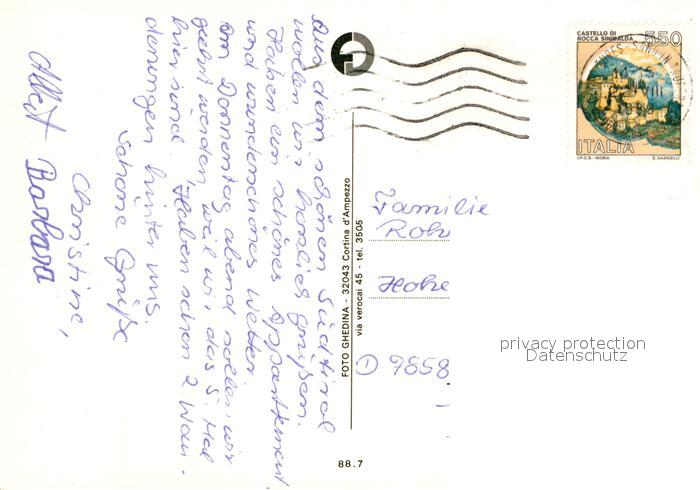 Aus dem schönen Südtirol
wollen wir herzlich grüßen.
Haben ein schönes Appartement
und wunderschönes Wetter.
Am Donnerstag abend sollen wir
geehrt werden weil wir das 5. Mal
hier sind. Haben schon 2 Wan-
derungen hinter uns.
Schöne Grüße
Christine,
Albert Barbara
FOTO GHEDINA - 32043 Cortina d'Ampezzo
via verocai 45 - tel. 3505
88.7
CASTELLO DI
ROCCA SINIBALDA
550
ITALIA
I.P.Z.S. - ROMA
E. VANGELLI
Familie
Rohr
Hohe
7858
privacy protection
Datenschutz